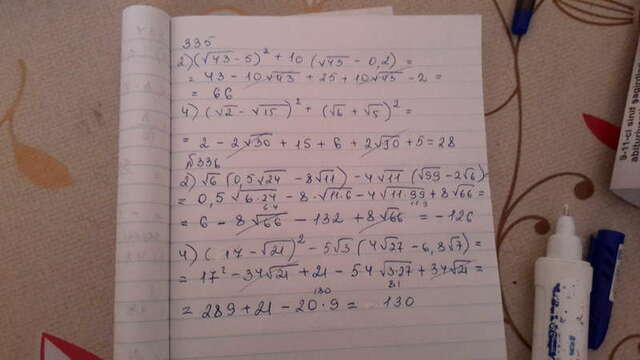 335
2) (√43 - 5)² + 10 (√43 - 0,2) =
= 43 - 10√43 + 25 + 10√43 - 2 =
= 66
4) (√2 - √15)² + (√6 + √5)² =
= 2 - 2√30 + 15 + 6 + 2√30 + 5 = 28
№336
2) √6 (0,5√24 - 8√11) - 4√11 (√99 - 2√6)
= 0,5 √6·24 - 8·√11·6 - 4√11·99 + 8√66 =
= 6 - 8√66 - 132 + 8√66 = -126
4) (17 - √21)² - 5√3 (4√27 - 6,8√7) =
= 17² - 34√21 + 21 - 5·4 √3·27 + 34√21 =
81
180
= 289 + 21 - 20·9 = 130
9-11-ci sinif